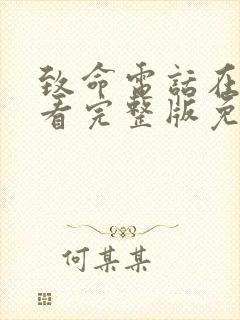 致命電話在
看完整版免
何某某